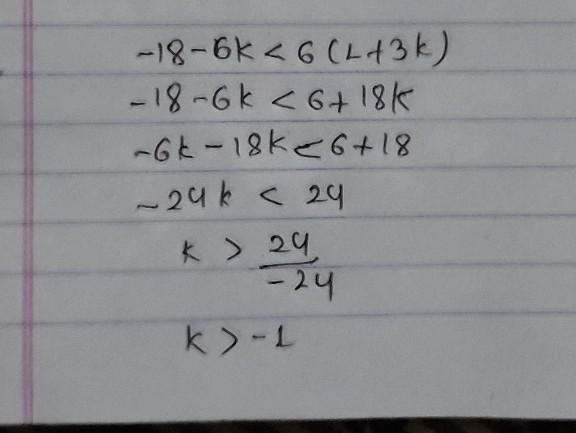 -18-6k < 6(1+3k)
-18-6k < 6+18k
-6k-18k < 6+18
-24k < 24
k > 24/-24
k > -1